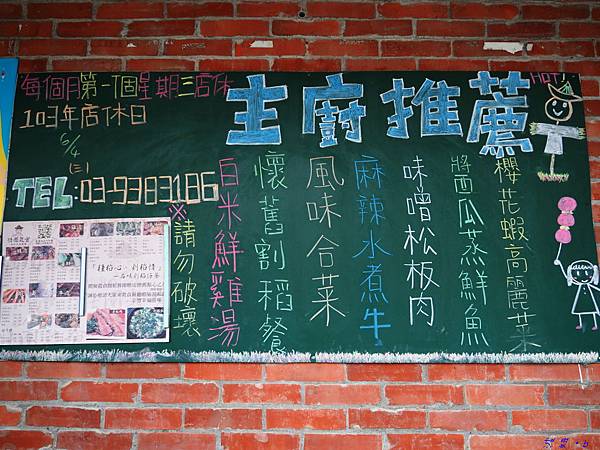 每個月第一個星期三店休
103年店休日
6/4
(三)
TEL:03-9383186
主廚推薦
HOT!
櫻花蝦高麗菜
醬西瓜蒸鮮魚
味噌松板肉
麻辣水煮牛
風味合菜
懷舊割稻餐
白米鮮雞湯
※請勿破壞
「種稻心,割稻情」